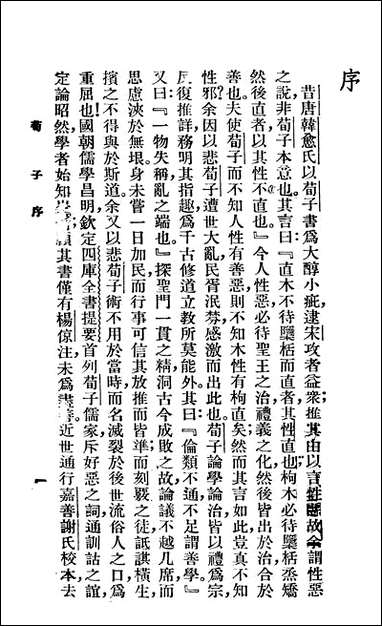 序
昔唐韓愈氏以荀子書爲大醇小疵，逮宋攻者益衆，推其由以言性惡故。余謂性惡
之說，非荀子本意也。其言曰：『直木不待檃栝而直者，其性直也；枸木必待檃栝烝矯
然後直者，以其性不直也。』今人性惡，必待聖王之治，禮義之化，然後皆出於治，合於
善也。夫使荀子而不知人性有善惡，則不知木性有枸直矣。然而其言如此，豈眞不知
性邪？余因以悲荀子遭世大亂，民胥泯棼，感激而出此也。荀子論學論治，皆以禮爲宗，
反復推詳，務明其指趣，爲千古修道立教所莫能外。其曰：『倫類不通，不足謂善學。』
又曰：『一物失稱，亂之端也。』探聖門一貫之精，洞古今成敗之故，論議不越几席，而
思慮浹於無垠；身未嘗一日加民，而行事可信其放推而皆準；而刻覈之徒，詆諆橫生，
擯之不得與於斯道。余又以悲荀子術不用於當時，而名滅裂於後世流俗人之口，爲
重屈也！國朝儒學昌明，欽定四庫全書提要首列荀子儒家，斥好惡之詞，通訓詁之誼，
定論昭然，學者始知其書僅有楊倞注，未爲盡善。近世通行嘉善謝氏校本，去
荀子序
一